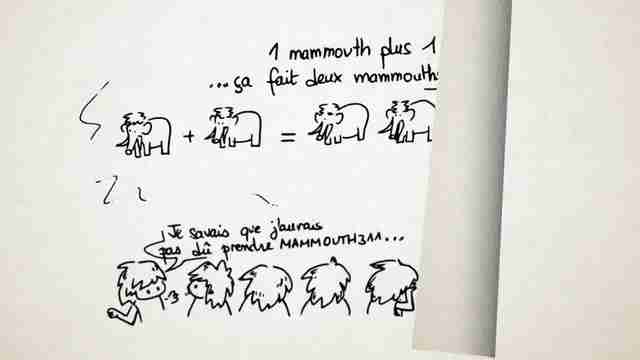 1 mammouth plus 1
...ça fait deux mammouths
+ =
Je savais que j'aurais
pas dû prendre MAMMOUTH311...